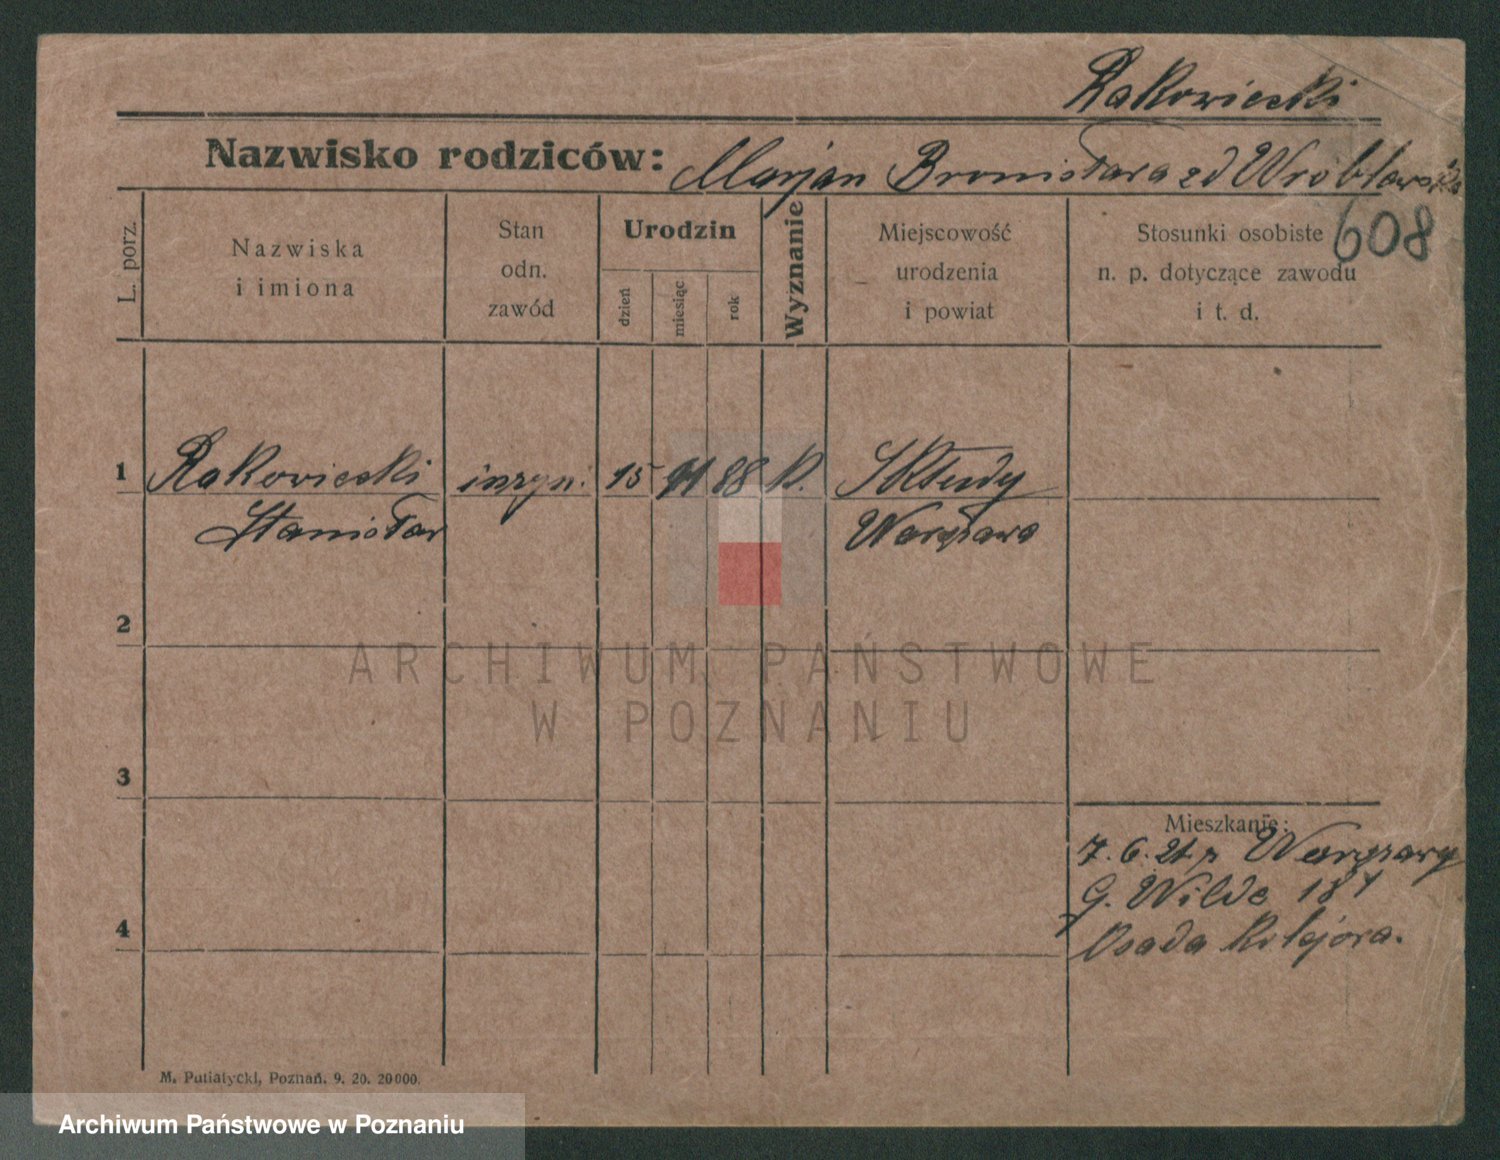 Rakowiecki
Nazwisko rodziców: Marjan Bronisława zd Wróblewska
608
L. porz.
Nazwiska
i imiona
Stan
odn.
zawód
Urodzin
dzień
miesiąc
rok
Wyznanie
Miejscowość
urodzenia
i powiat
Stosunki osobiste
n. p. dotyczące zawodu
i t. d.
1 Rakowiecki inżyn. 15 88 k.
Stanisław Warszawa
2
3
4
Mieszkanie:
7. 6. 21 z Warszawy
G. Wilda
Osada Kolejowa.
M. Putiatycki, Poznań. 9. 20. 20000.
ARCHIWUM PAŃSTWOWE
W POZNANIU
Archiwum Państwowe w Poznaniu